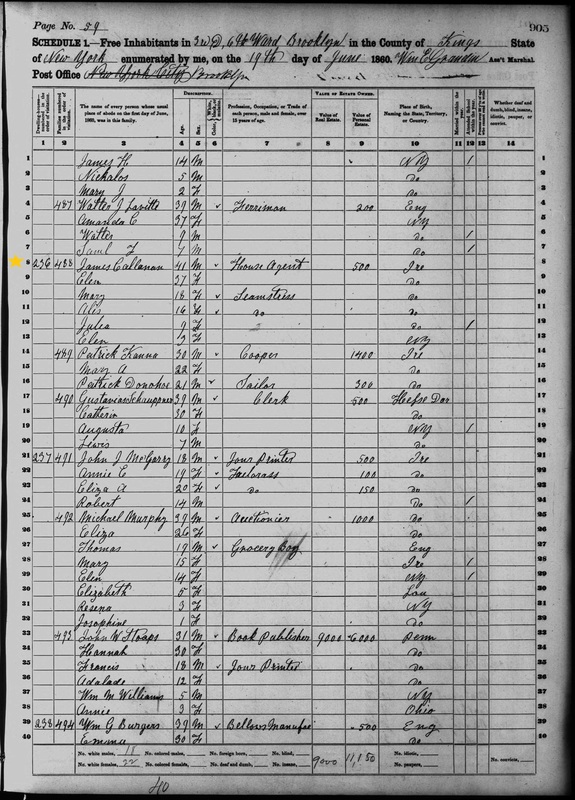 Page No. 59
905
SCHEDULE 1.—Free Inhabitants in 3rd D, 6th Ward, Brooklyn in the County of Kings State
of New York enumerated by me, on the 19th day of June 1860. Ass't Marshal.
Post Office New York City Brooklyn
Dwelling-houses— numbered in the order of visitation.
Families numbered in the order of visitation.
The name of every person whose usual place of abode on the first day of June, 1860, was in this family.
DESCRIPTION.
Age.
Sex.
Profession, Occupation, or Trade of each person, male and female, over 15 years of age.
VALUE OF ESTATE OWNED.
Value of Real Estate.
Value of Personal Estate.
Place of Birth, Naming the State, Territory, or Country.
Married within the year.
Attended School within the year.
Whether deaf and dumb, blind, insane, idiotic, pauper, or convict.
1 2 3 4 5 6 7 8 9 10 11 12 13 14
1 James H. 14 M NY / 1
2 Nicholas 5 M Do 2
3 Mary J 2 F Do 3
4 487 Walter J Laville 39 M Ferriman 200 Eng 4
5 Amanda C 37 F NY 5
6 Walter 9 M Do / 6
7 Saml F 7 M Do / 7
8 236 488 James Callanan 41 M House Agent 500 Ire 8
9 Elen 37 F Do 9
10 Mary 18 F Seamstress Do 10
11 Alis 16 F Do Do 11
12 Julea 9 F Do / 12
13 Elen 3 F NY 13
14 489 Patrick Kanna 30 M Cooper 1400 Ire 14
15 Mary A 22 F Do 15
16 Patrick Donohoe 21 M Sailor 300 Do 16
17 490 39 M Clerk 500 Hefse Dar 17
18 Catherin 30 F Do 18
19 Augusta 10 F NY / 19
20 Lewis 7 M Do 20
21 237 491 John J McGarry 18 M Jour Printer 500 Ire 21
22 Annie E 19 F 100 Do 22
23 Eliza A 20 F Do 150 Do 23
24 Robert 14 M Do / 24
25 492 Michael Murphy 39 M Auctionier 1000 Do 25
26 Eliza 26 F Do 26
27 Thomas 19 M Grocery Boy Eng 27
28 Mary 15 F Ire / 28
29 Elen 14 F NY / 29
30 Elizabeth 5 F Lou 30
31 Rosena 3 F NY 31
32 Josophine 1 F Do 32
33 493 John W Stoaps 31 M Book Publisher 9000 6000 Penn 33
34 Hannah 30 F Do 34
35 Francis 18 M Jour Printer Do 35
36 Adalade 12 F Do 36
37 Wm M Williams 5 M NY 37
38 Annie 3 F Ohio 38
39 238 494 Wm G Burgess 39 M Bellows Manufac 500 Eng 39
40 Emma 30 F Do 40
No. white males, 18 No. colored males, No. foreign born, No. blind, 9000 11,150 No. idiotic, No. convicts,
No. white females, 22 No. colored females, No. deaf and dumb, No. insane, No. paupers,
40